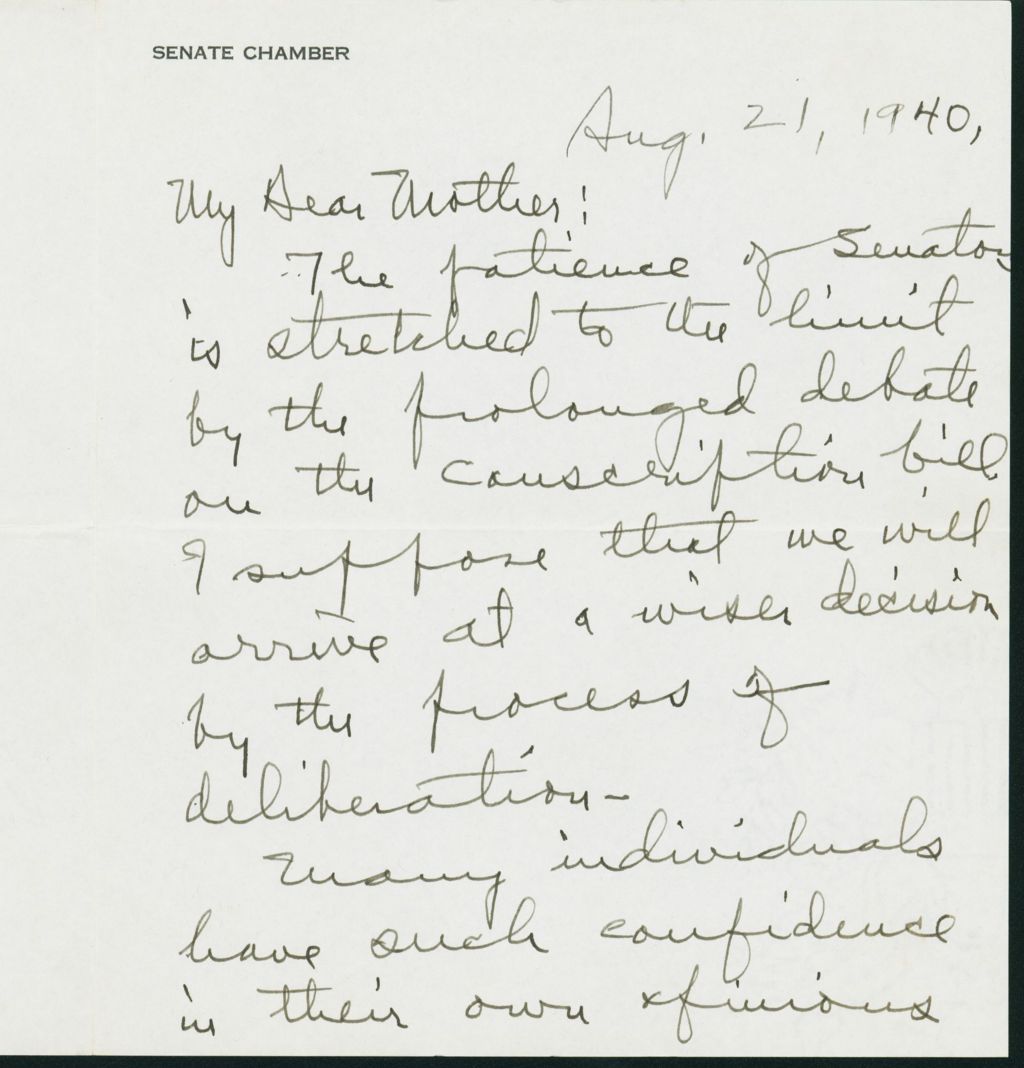 SENATE CHAMBER
Aug. 21, 1940,
My Dear Mother:
The patience of Senators
is stretched to the limit
by the prolonged debate
on the conscription bill
I suppose that we will
arrive at a wiser decision
by the process of
deliberation-
Many individuals
have such confidence
in their own opinions